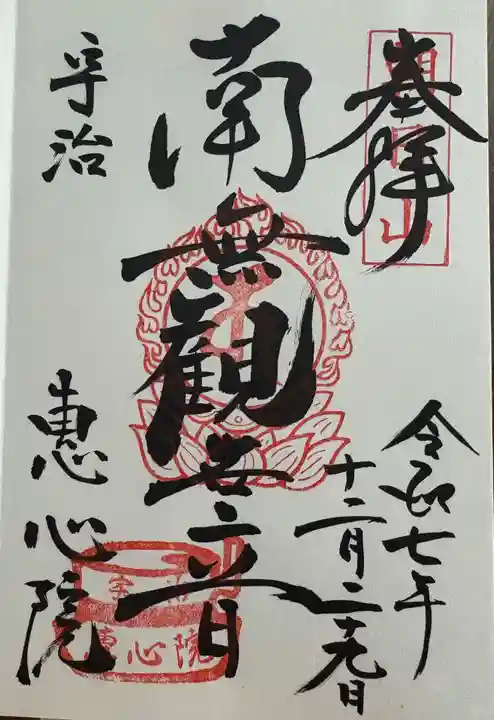 奉拝
朝日山
令和七年
十二月二十九日
南無観世音
宇治
恵心院
宇治
恵心院